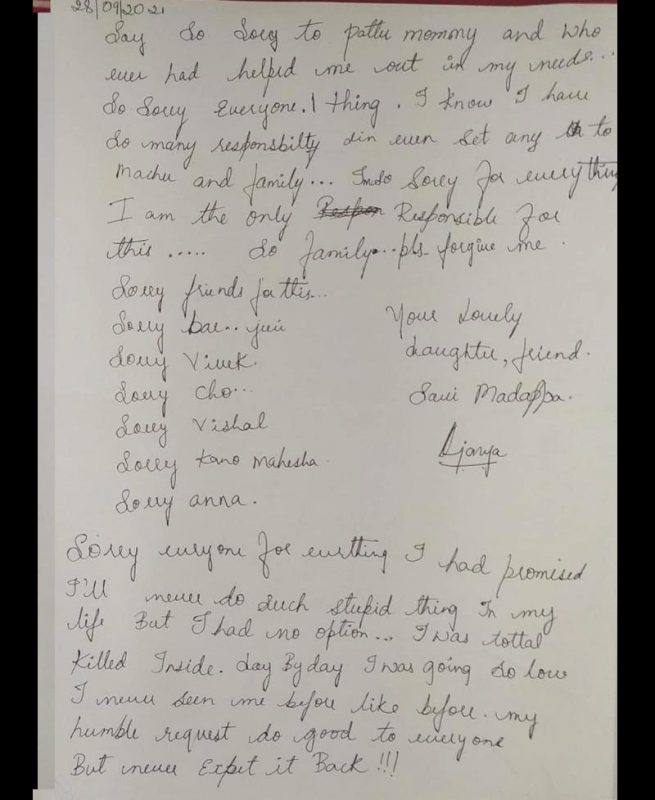 28/09/2021
Say So Sorry to pattu mommy and who
ever had helped me out in my needs...
So Sorry Everyone. 1 thing. I know I have
So many responsbilty din even set any to
Machu and family... Imso Sorry for everything
I am the only Responsible for
this ..... So family...pls forgive me.
Sorry friends for this...
Sorry bae..
Sorry Vivek.
Sorry Cho...
Sorry Vishal
Sorry Kano Mahesha.
Sorry anna.
Your Lovely
daughter, friend.
Savi Madappa.
Sorry everyone for everthing I had promised
I'll never do such stupid thing In my
life But I had no option... I was tottal
Killed Inside. day By day I was going so low
I never seen me before like before. my
humble request do good to everyone
But never Expet it Back !!!